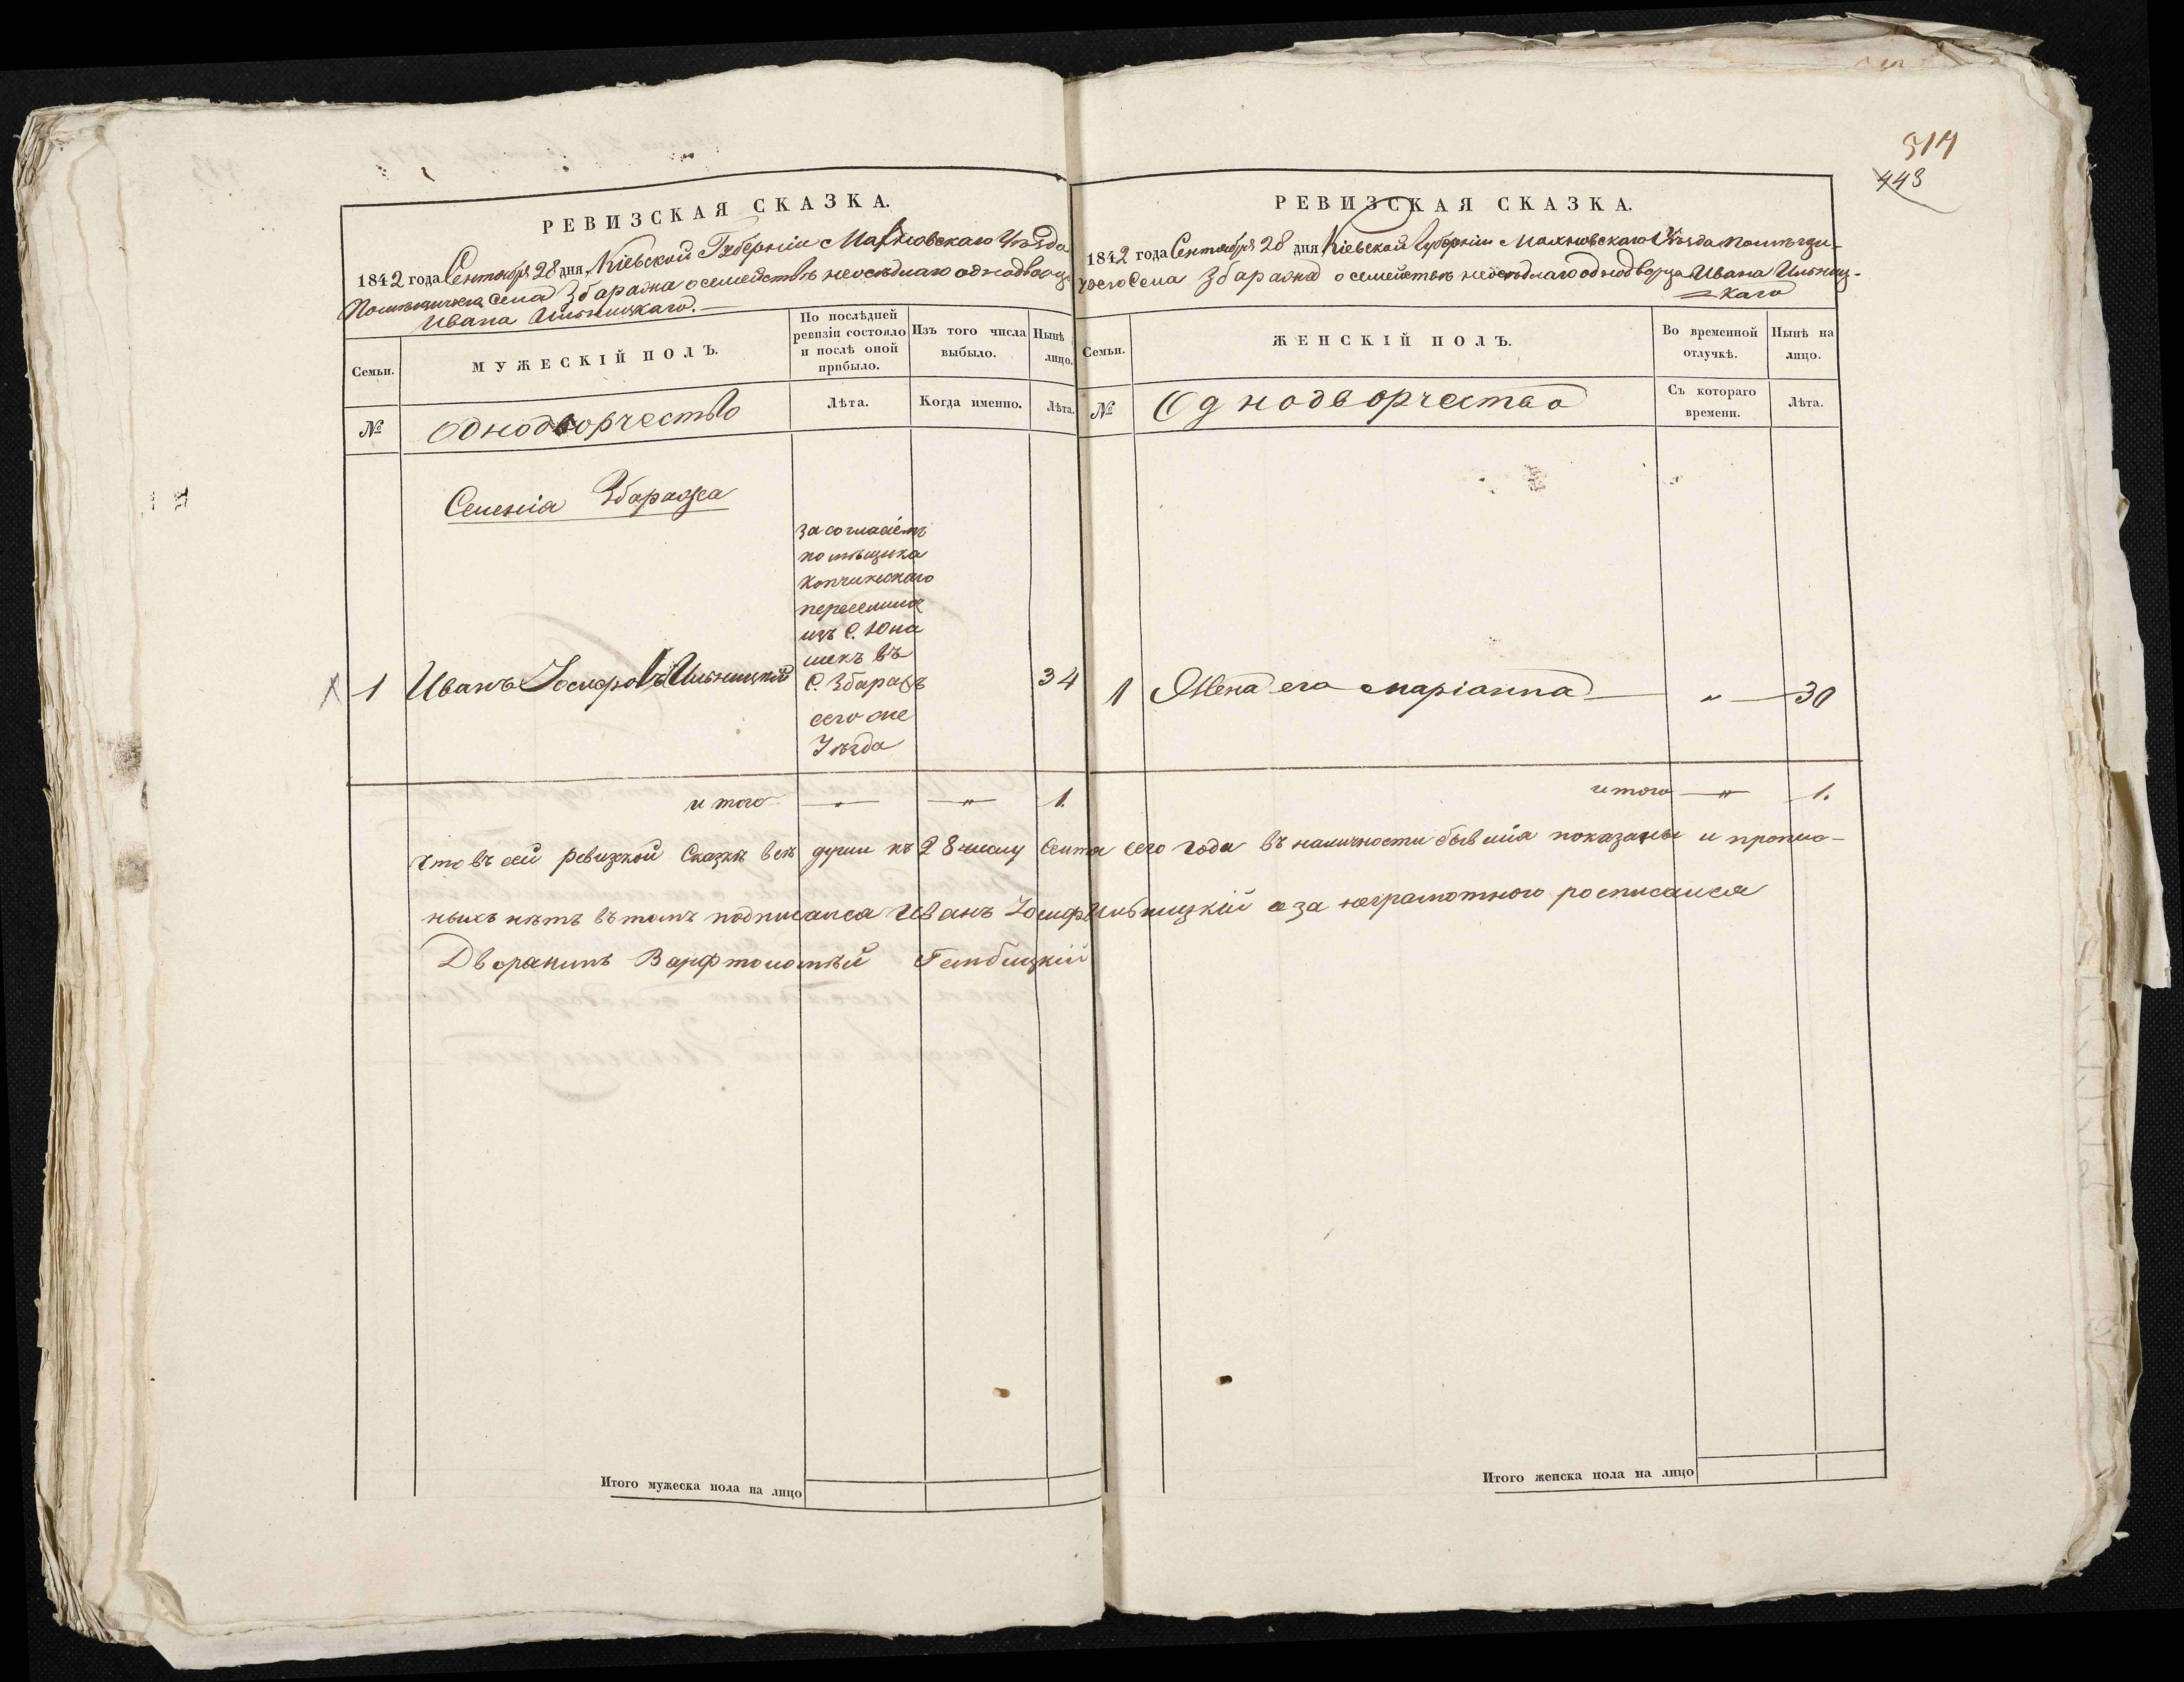 514
443
РЕВИЗСКАЯ СКАЗКА.
1842 года Сентября 28 дня, Кіевской Губерніи Махновскаго Уѣзда
Помѣщичьего Села Збаража о семействѣ неосѣдлаго однодворца
Ивана Ильницкаго.
Семьи.
МУЖЕСКІЙ ПОЛЪ.
По послѣдней
ревизіи состояло
и послѣ оной
прибыло.
Изъ того числа
выбыло.
Нынѣ
лицо.
№
Однодворчество
Лѣта.
Когда именно.
Лѣта.
Селенія Збаража
За согласіемъ
помѣщика
Копчинскаго
переселился
изъ С. Юна
шекъ въ
С. Збаражъ
сего же
Уѣзда
1 Иванъ Іосифовъ Ильницкій
34
итого — „ — — „ — 1.
РЕВИЗСКАЯ СКАЗКА.
1842 года Сентября 28 дня Кіевской Губерніи Махновскаго Уѣзда Помѣщи-
чьего Села Збаража о семействѣ неосѣдлаго однодворца Ивана Ильниц-
каго
Семьи.
ЖЕНСКІЙ ПОЛЪ.
Во временной
отлучкѣ.
Нынѣ на
лицо.
№
Однодворчество
Съ котораго
времени.
Лѣта.
1 Жена его Маріанна — „ — 30
итого — „ — 1.
Что въ сей ревизской Сказкѣ всѣ души къ 28 числу Сентя сего года въ наличности бывшія показаны и пропис-
ныхъ нѣтъ въ томъ подписался Иванъ Іосиф Ильницкій а за неграмотного росписался
Дворянинъ Варфтоломѣй Гембицкій
Итого мужеска пола на лицо
Итого женска пола на лицо